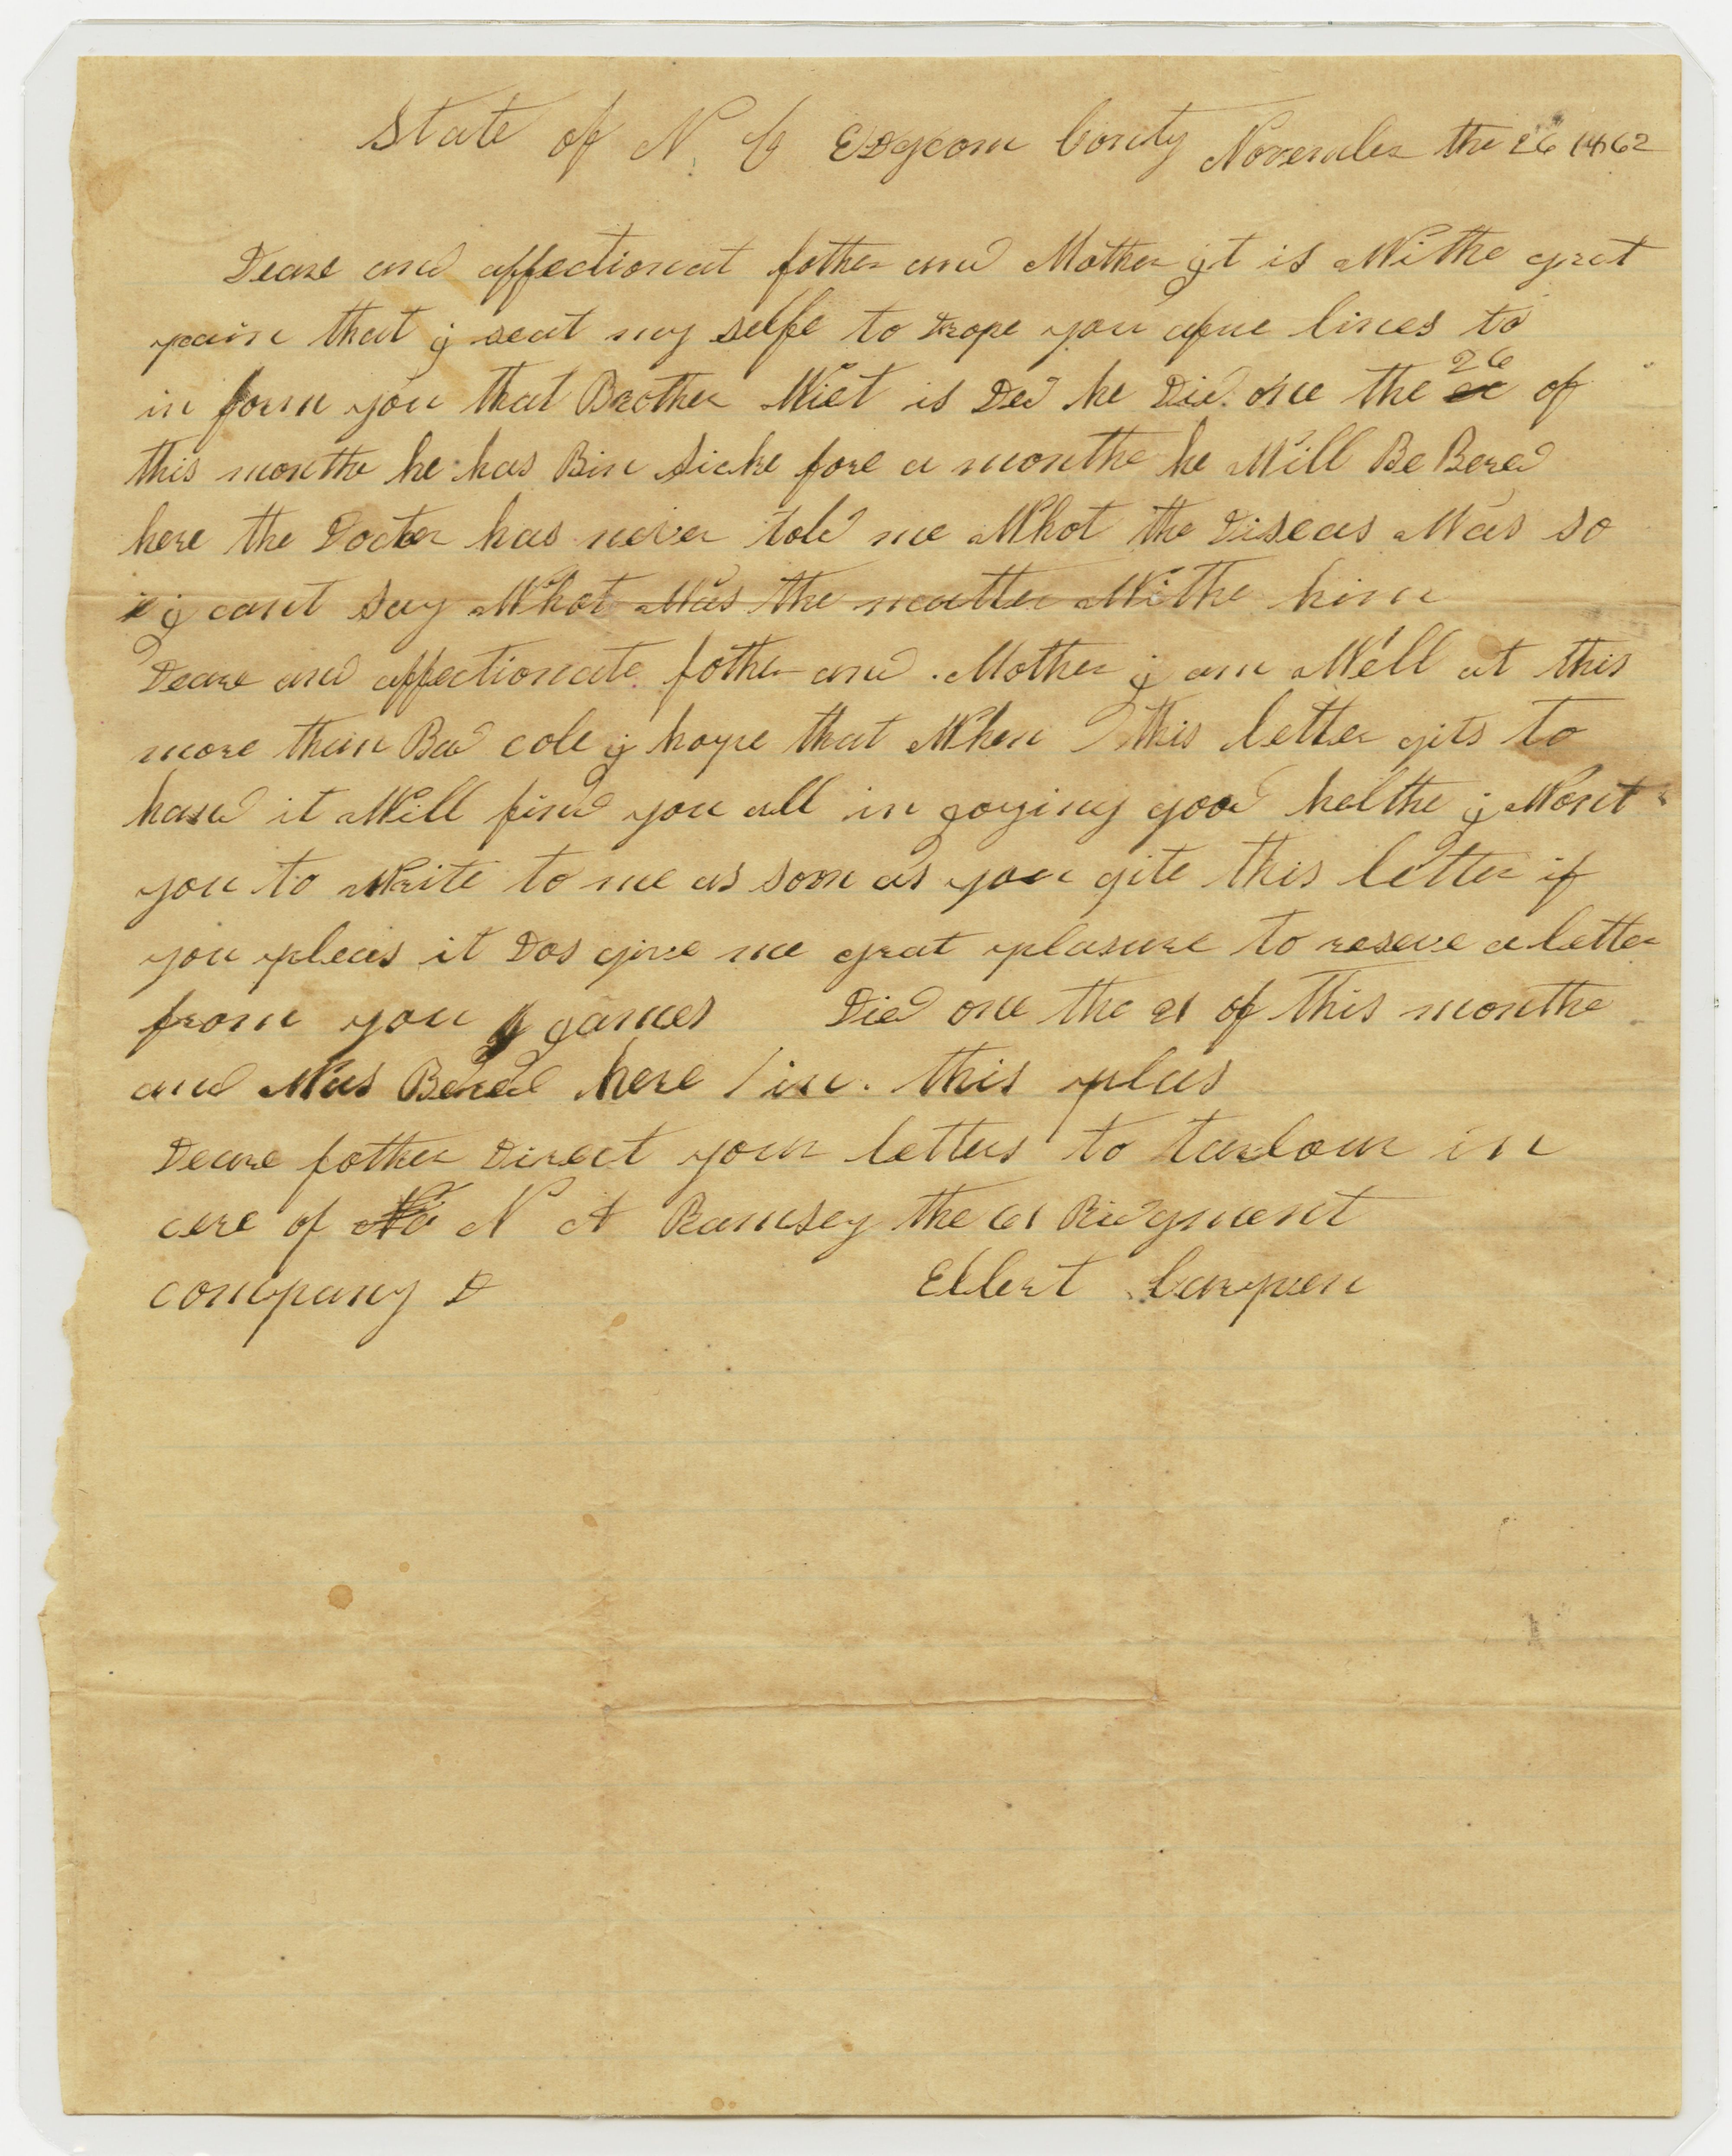 State of N. C Edgcom Conty November the 26 1862
Deare and affectionat fother and Mother jt is Withe gret
pain that j seat my selfe to Drope you afue lines to
in form you that Brother Wiet is Ded he Died one the 26 of
this monthe he has Bin Sicke fore a monthe he Will Be Bered
here the Docter has never told me Whot the Diseas Was so
j cant say Whot Was the matter Withe him
Deare and affectionate fother and Mother j am Well at this
more than Bad cole j hope that When this letter gits to
hand it Will find you all in joying good helthe j Wont
you to Write to me as soon as you gite this letter if
you pleas it Dos give me grat plasure to reseve a letter
from you James Died one the 21 of this monthe
and Was Bered here in this plas
Deare fother Direct your letters to tarbour in
cere of N A Ramsey the 61 Ridgment
company D Elbert Carpen